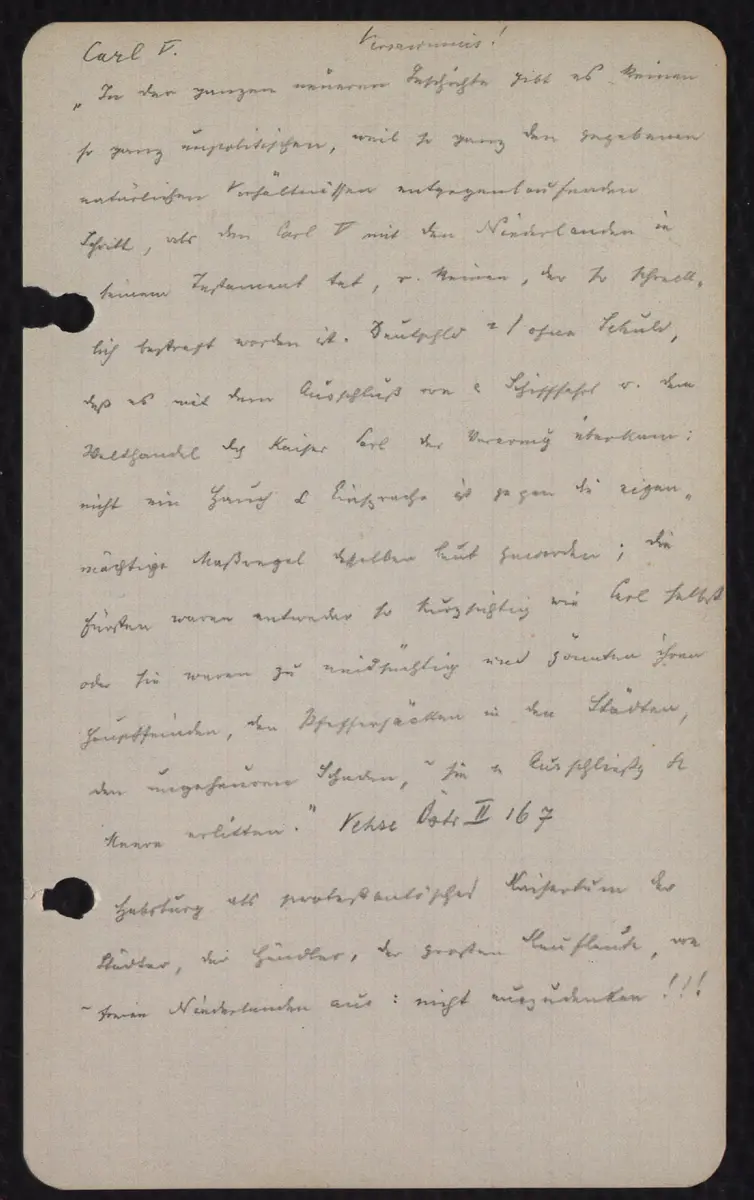 Carl V. Versäumnis!
„In der ganzen neueren Geschichte gibt es keinen
so ganz unpolitischen, weil so ganz den gegebenen
natürlichen Verhältnissen entgegenlaufenden
Schritt, als den Carl V mit den Niederlanden in
seinem Testament tat, u. keinen, der so schreck-
lich bestraft worden ist. Deutschld ohne Schuld,
daß es mit dem Ausschluß von Schifffahrt u. dem
Welthandel des Kaiser Carl der Verarmg überkam:
nicht ein Hauch Einsprache ist gegen die eigen-
mächtige Maßregel desselben laut geworden; die
Fürsten waren entweder so kurzsichtig wie Carl selbst
oder sie waren zu neidsüchtig und gönnten ihren
Hauptfeinden, den Pfeffersäcken in den Städten,
den ungeheuren Schaden, sie Ausschließg
Meere erlitten." Vehse Östr II 167
Habsburg als protestantisches Kaisertum der
Städter, der Händler, der grossen Kaufleute, von
freien Niederlanden aus: nicht auszudenken!!!